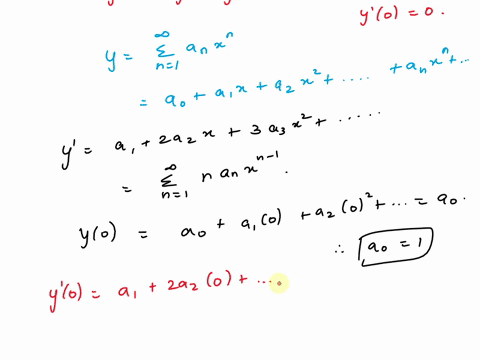 y'(0) = 0.
y = ∞ Σ n=1 aₙ xⁿ
= a₀ + a₁x + a₂x² + .... + aₙxⁿ + ...
y' = a₁ + 2a₂x + 3a₃x² + .....
= ∞ Σ n=1 n aₙ xⁿ⁻¹.
y(0) = a₀ + a₁(0) + a₂(0)² + ... = a₀.
∴ a₀ = 1
y'(0) = a₁ + 2a₂(0) + ....